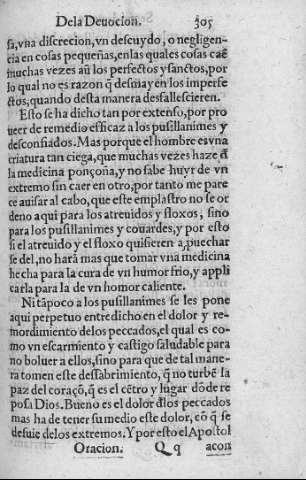 De la Deuocion. 305
sa, vna discrecion, vn descuydo, o negligen-
cia en cosas pequeñas, en las quales cosas caē
muchas vezes aũ los perfectos y sanctos, por
lo qual no es razon q̃ desmayen los imperfe
ctos, quando desta manera desfallescieren.
Esto se ha dicho tan por extenso, por pro
ueer de remedio efficaz a los pusillanimes y
desconfiados. Mas porque el hombre es vna
criatura tan ciega, que muchas vezes haze d̃
la medicina ponçoña, y no sabe huyr de vn
extremo sin caer en otro, por tanto me pare
ce auisar al cabo, que este emplastro no se or
deno aqui para los atreuidos y floxos, sino
para los pusillanimes y couardes, y por esto
si el atreuido y el floxo quisieren apuechar
se del, no hará mas que tomar vna medicina
hecha para la cura de vn humor frio, y appli
carla para la de vn humor caliente.
Ni tãpoco a los pusillanimes se les pone
aqui perpetuo entredicho en el dolor y re-
mordimiento de los peccados, el qual es co-
mo vn escarmiento y castigo saludable para
no boluer a ellos, sino para que de tal mane-
ra tomen este desabrimiento, q̃ no turbē la
paz del coraçõ, q̃ es el cētro y lugar dõde re
posa Dios. Bueno es el dolor d̃los peccados
mas ha de tener su medio este dolor, cõ q̃ se
desuie de los extremos. Y por esto el Apostol
Oracion. Qq acon